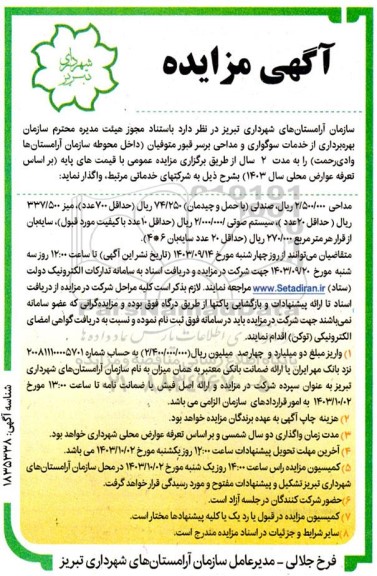 شهرداری
تبریز
آگهی مزایده
سازمان آرامستان‌های شهرداری تبریز در نظر دارد باستناد مجوز هیئت مدیره محترم سازمان
بهره‌برداری از خدمات سوگواری و مداحی برسر قبور متوفیان (داخل محوطه سازمان آرامستان‌ها
وادی‌رحمت) را به مدت ۲ سال از طریق برگزاری مزایده عمومی با قیمت های پایه (بر اساس
تعرفه عوارض محلی سال ۱۴۰۳) بشرح ذیل به شرکتهای خدماتی مرتبط، واگذار نماید:
مداحی ۲/۵۰۰/۰۰۰ ریال، صندلی (با حمل و چیدمان) ۷۴/۲۵۰ ریال (حداقل ۷۰۰ عدد)، میز ۳۳۷/۵۰۰
ریال (حداقل ۲۰ عدد)، سیستم صوتی ۲/۰۰۰/۰۰۰ ریال (حداقل ۱۰ عدد با کیفیت مورد قبول)، سایه‌بان
از قرار هر متر مربع ۲۷۰/۰۰۰ ریال (حداقل ۲۰ عدد سایه‌بان ۶*۴).
متقاضیان می‌توانند از روز چهارشنبه مورخ ۱۴۰۳/۰۹/۱۴ (تاریخ نشر این آگهی) تا ساعت ۱۲:۰۰ روز سه
شنبه مورخ ۱۴۰۳/۰۹/۲۰ جهت شرکت در مزایده و دریافت اسناد به سامانه تدارکات الکترونیک دولت
(ستاد) www.Setadiran.ir مراجعه نمایند. لازم بذکر است کلیه مراحل شرکت در مزایده از دریافت
اسناد تا ارائه پیشنهادات و بازگشایی پاکتها از طریق درگاه فوق بوده و مزایده‌گرانی که عضو سامانه
نمی‌باشند جهت شرکت در مزایده باید در سامانه فوق ثبت نام نموده و نسبت به دریافت گواهی امضای
الکترونیکی (توکن) اقدام نمایند.
۱) واریز مبلغ دو میلیارد و چهارصد میلیون ریال (۲/۴۰۰/۰۰۰/۰۰۰) به حساب شماره ۲۰۰۸۱۱۱۰۰۰۵۷۰۱
نزد بانک مهر ایران یا ارائه ضمانت بانکی معتبر به همان میزان به نام سازمان آرامستان‌های شهرداری
تبریز به عنوان سپرده شرکت در مزایده و ارائه اصل فیش یا ضمانت نامه تا ساعت ۱۳:۰۰ مورخ
۱۴۰۳/۱۰/۰۲ به امور قراردادهای سازمان الزامی می باشد.
۲) هزینه چاپ آگهی به عهده برندگان مزایده خواهد بود.
۳) مدت زمان واگذاری دو سال شمسی و بر اساس تعرفه عوارض محلی شهرداری خواهد بود.
۴) آخرین مهلت تحویل پیشنهادات ساعت ۱۲:۰۰ روز یکشنبه مورخ ۱۴۰۳/۱۰/۰۲ می باشد.
۵) کمیسیون مزایده راس ساعت ۱۴:۰۰ روز یک شنبه مورخ ۱۴۰۳/۱۰/۰۲ در محل سازمان آرامستان‌های
شهرداری تبریز تشکیل و پیشنهادات مفتوح و مورد رسیدگی قرار خواهد گرفت.
۶) حضور شرکت کنندگان در جلسه آزاد است.
۷) کمیسیون مزایده در قبول یا رد یک یا کلیه پیشنهادها مختار است.
۸) سایر شرایط و جزئیات در اسناد مزایده مندرج است.
فرخ جلالی - مدیرعامل سازمان آرامستان‌های شهرداری تبریز
شناسه آگهی: ۱۸۳۵۳۳۸